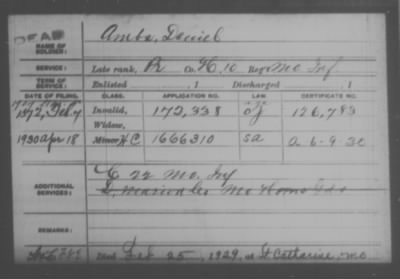 DEAD
NAME OF SOLDIER: Ambs, Daniel
SERVICE: Late rank, P Co. H, 10 Reg't Mo Inf
TERM OF SERVICE: Enlisted , 1 Discharged , 1
DATE OF FILING. CLASS. APPLICATION NO. LAW. CERTIFICATE NO.
1872, Feb. 7 Invalid, 172,338 126,783
Widow,
1930 Apr 18 Minor C 1666310 a 6-9-30
ADDITIONAL SERVICES: E 22 Mo. Inf
Maries Co Mo Home Gds
REMARKS:
Died Feb 25, 1929, at St Catharine, Mo.